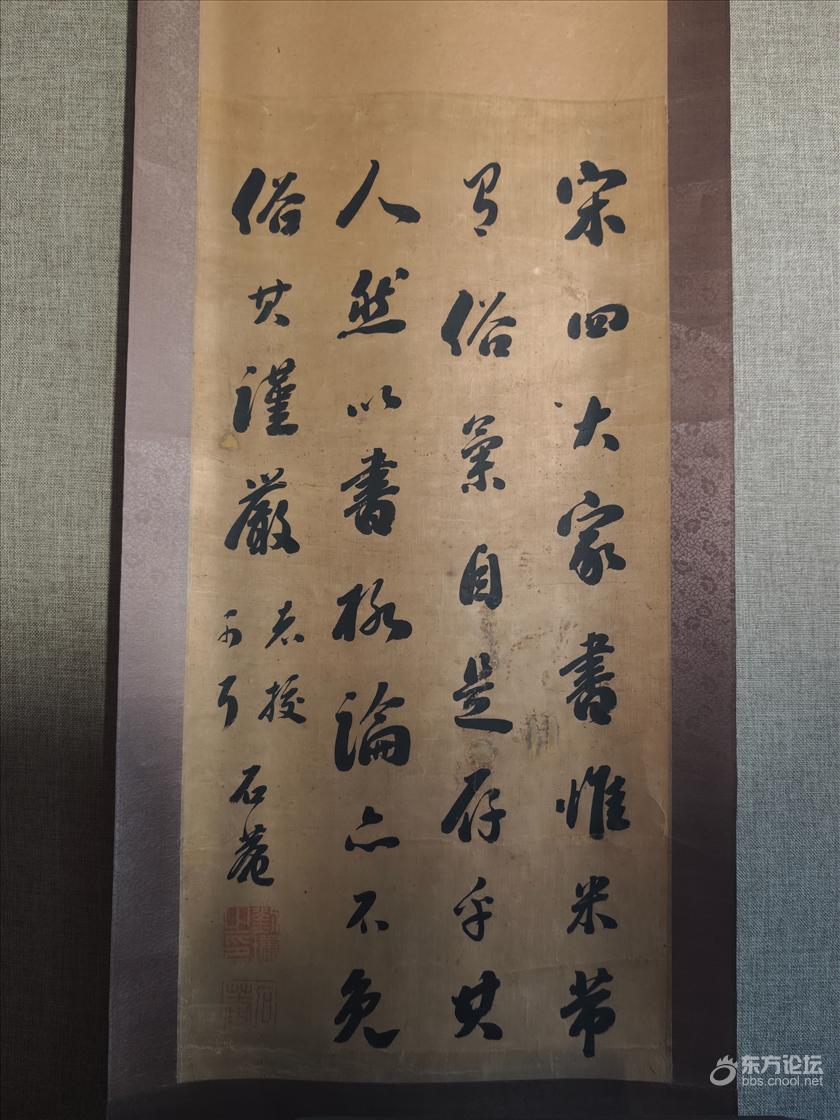 宋四大家書惟米芾
有俗氣自是存乎其
人然以書格論亦不免
俗其謹嚴
石菴
劉墉之印
石菴
东方论坛
bbs.cnool.net